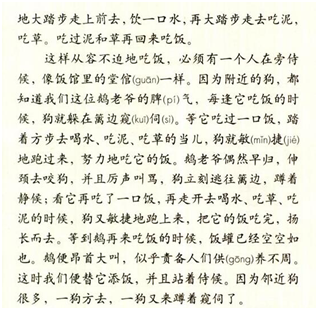 地大踏步走上前去，饮一口水，再大踏步走去吃泥，
吃草。吃过泥和草再回来吃饭。
这样从容不迫地吃饭，必须有一个人在旁侍
候，像饭馆里的堂倌(guān)一样。因为附近的狗，都
知道我们这位鹅老爷的脾(pí)气，每逢它吃饭的时
候，狗就躲在篱边窥(kuī)伺(sì)。等它吃过一口饭，踏
着方步去喝水、吃泥、吃草的当儿，狗就敏(mǐn)捷(jié)
地跑过来，努力地吃它的饭。鹅老爷偶然早归，伸
颈去咬狗，并且厉声叫骂，狗立刻逃往篱边，蹲着
静候；看它再吃了一口饭，再走开去喝水、吃草、吃
泥的时候，狗又敏捷地跑上来，把它的饭吃完，扬
长而去。等到鹅再来吃饭的时候，饭罐已经空空如
也。鹅便昂首大叫，似乎责备人们供(gōng)养不周。
这时我们便替它添饭，并且站着侍候。因为邻近狗
很多，一狗方去，一狗又来蹲着窥伺了。